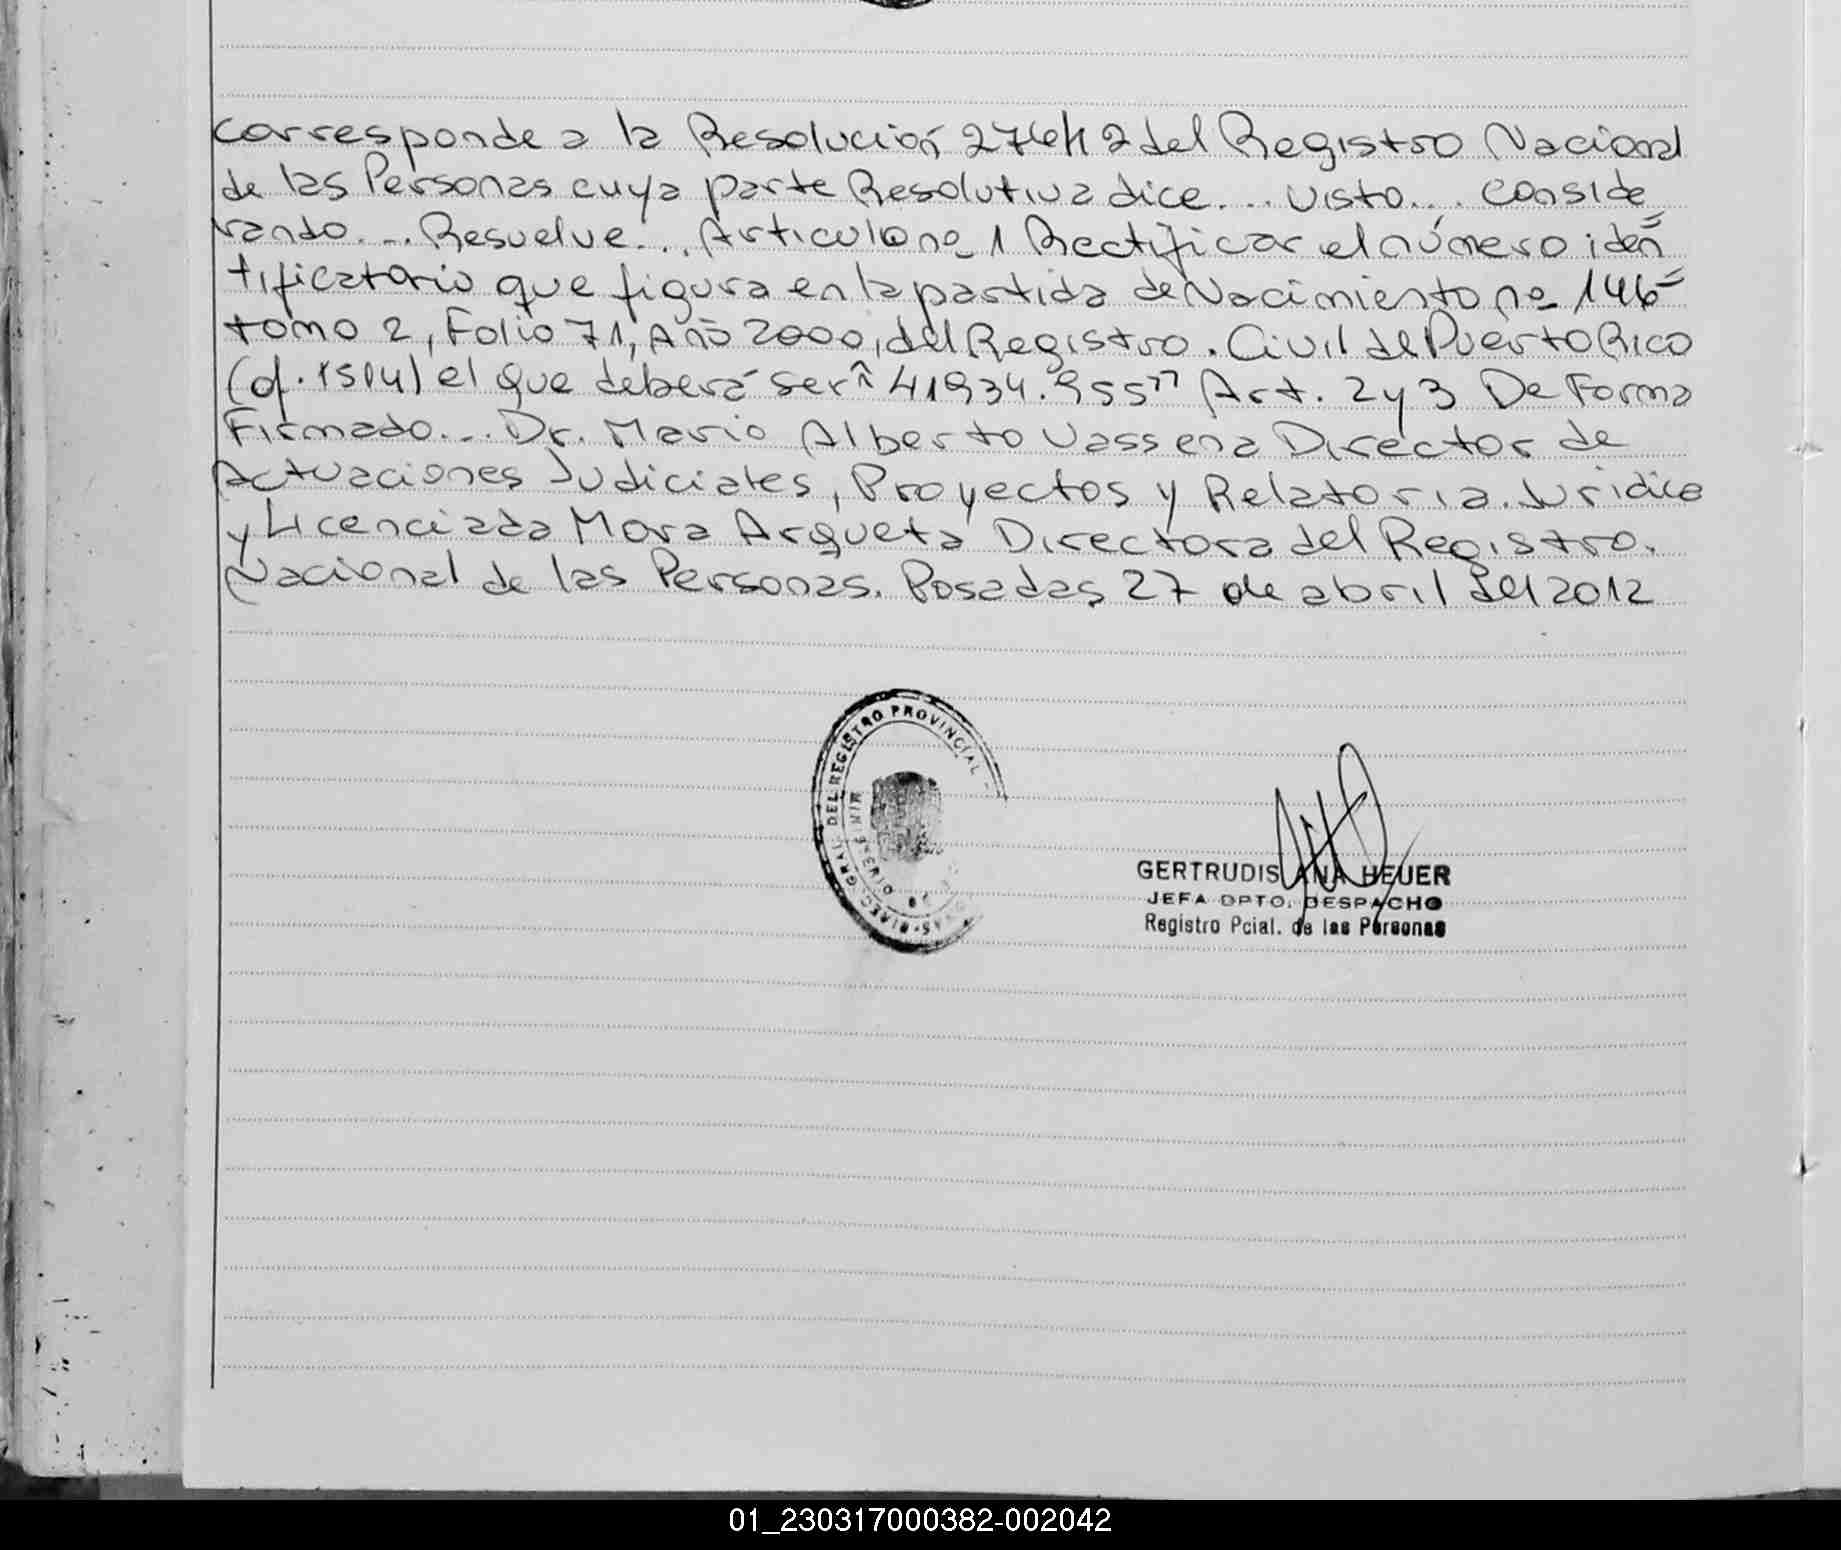 corresponde a la Resolución 2764/12 del Registro Nacional
de las Personas cuya parte Resolutiva dice... Visto... Conside
rando... Resuelve... Articulo no 1 Rectificar el número iden
tificatorio que figura en la partida de Nacimiento no 146
tomo 2, Folio 71, Año 2000, del Registro. Civil de Puerto Rico
(of. 1514) el que deberá ser "41934.955" Art. 2 y 3 De Forma
Firmado... Dr. Mario Alberto Vassena Director de
Actuaciones Judiciales, Proyectos y Relatoria. Juridica
y Licenciada Mora Arqueta Directora del Registro.
Nacional de las Personas. Posadas 27 de abril del 2012
DIREC. GRAL. DEL REGISTRO PROVINCIAL
GERTRUDIS ANA HEUER
JEFA DPTO. DESPACHO
Registro Pcial. de las Personas
01_230317000382-002042